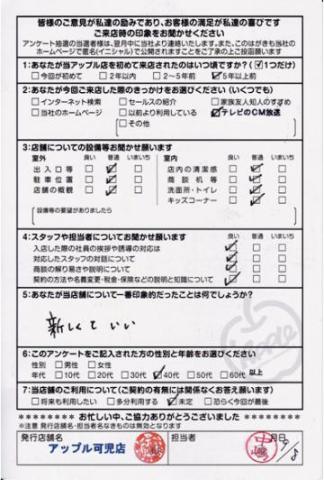 皆様のご意見が私達の励みであり、お客様の満足が私達の喜びです
ご来店時の印象をお聞かせください
アンケート抽選の当選者様は、翌月中に当社より連絡いたします。また、このはがきも当社の
ホームページで匿名(イニシャル)で公開されますことをご了承の上ご投函願います
1:あなたが当アップル店を初めて来店されたのはいつ頃ですか?(✓1つだけ)
□今回が初めて □2年以内 □2~5年前 ☑5年以上前
2:あなたが今回ご来店した時のきっかけをお選びください(いくつでも)
□インターネット検索 □セールスの紹介 □家族友人知人のすすめ
□当社のホームページ □以前より利用している ☑テレビのCM放送
□その他
3:店舗についての設備等お聞かせ願います
室外 良い 普通 いまいち 室内 良い 普通 いまいち
出入口等 □ ☑ □ 店内の清潔感 □ ☑ □
駐車位置 □ ☑ □ 商談机等 □ ☑ □
店舗の概観 □ ☑ □ 洗面所・トイレ □ ☑ □
キッズコーナー □ ☑ □
(設備等の要望がありましたら
4:スタッフや担当者についてお聞かせ願います
良い 普通 いまいち
入店した際の社員の挨拶や誘導の対応は
対応したスタッフの対話について
商談の解り易さや説明について
契約の方法や名義変更・税金・保険などの説明と知識について
5:あなたが当店舗について一番印象的だったことは何でしょうか?
新しくていい
6:このアンケートをご記入された方の性別と年齢をお選びください
性別 □男性 □女性
年代 □10代 □20代 □30代 ☑40代 □50代 □60代 以上
7:当店舗のご利用について(ご契約の有無には関係なくお答え願います)
□将来も利用したい □多分利用する ☑未定 □恐らく今回が最後
******** お忙しい中、ご協力ありがとうございました ********
※注意 発行店舗名・担当者名なきものは無効となります
発行店舗名 担当者 月 日
アップル可児店